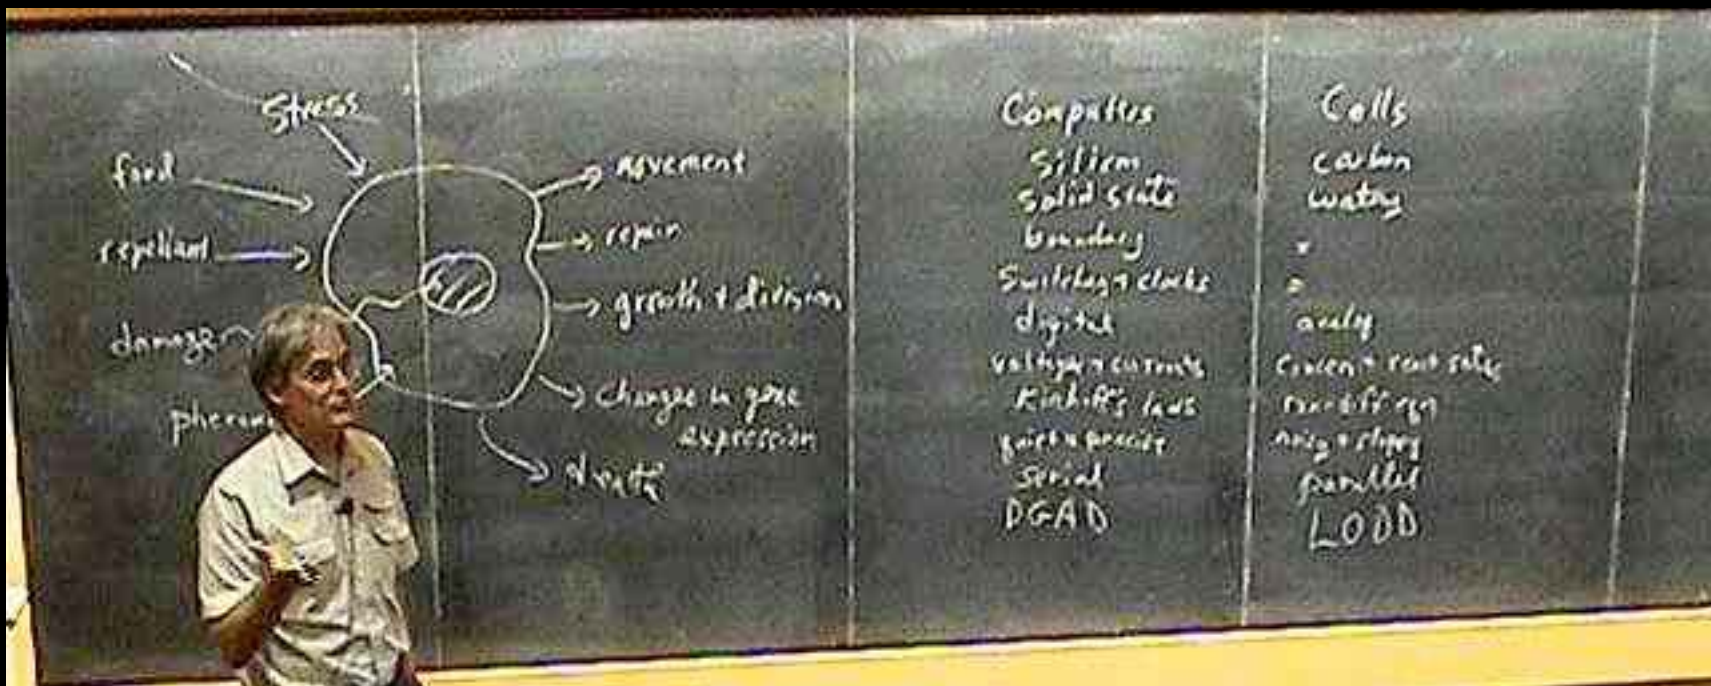 Stress
food
repellant
damage
pherom
movement
repair
growth + division
changes in gene
expression
death
Computers
silicon
solid state
boundary
Switches + clocks
digital
voltages + currents
Kirchoff's laws
quiet + precise
serial
DGAD
Cells
carbon
watery
"
"
analog
concen + react rates
noisy + sloppy
parallel
LODD